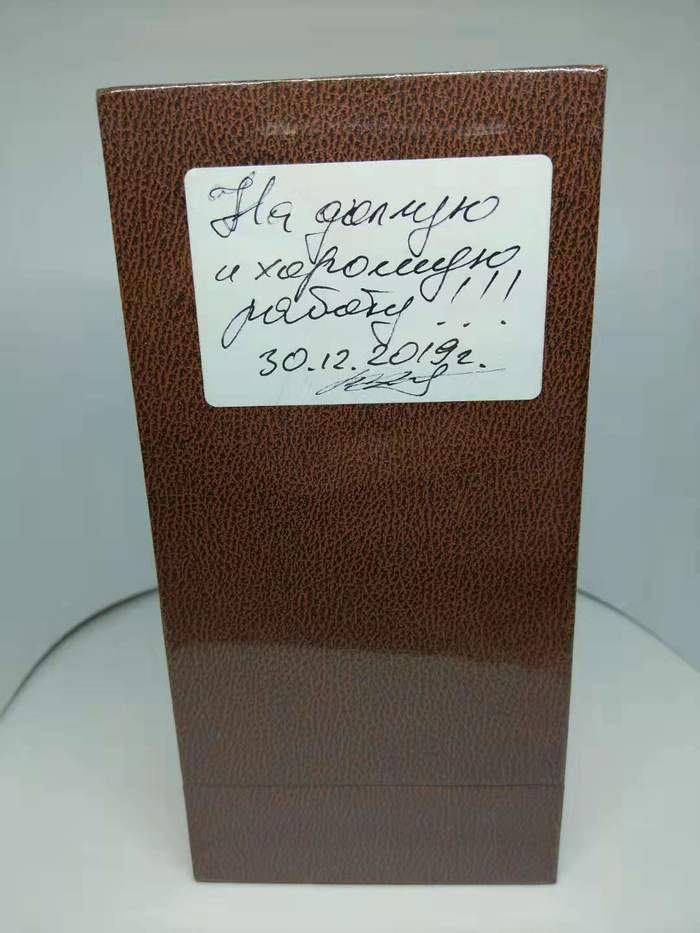 На долгую
и хорошую
работу!!!
30.12.2019г.